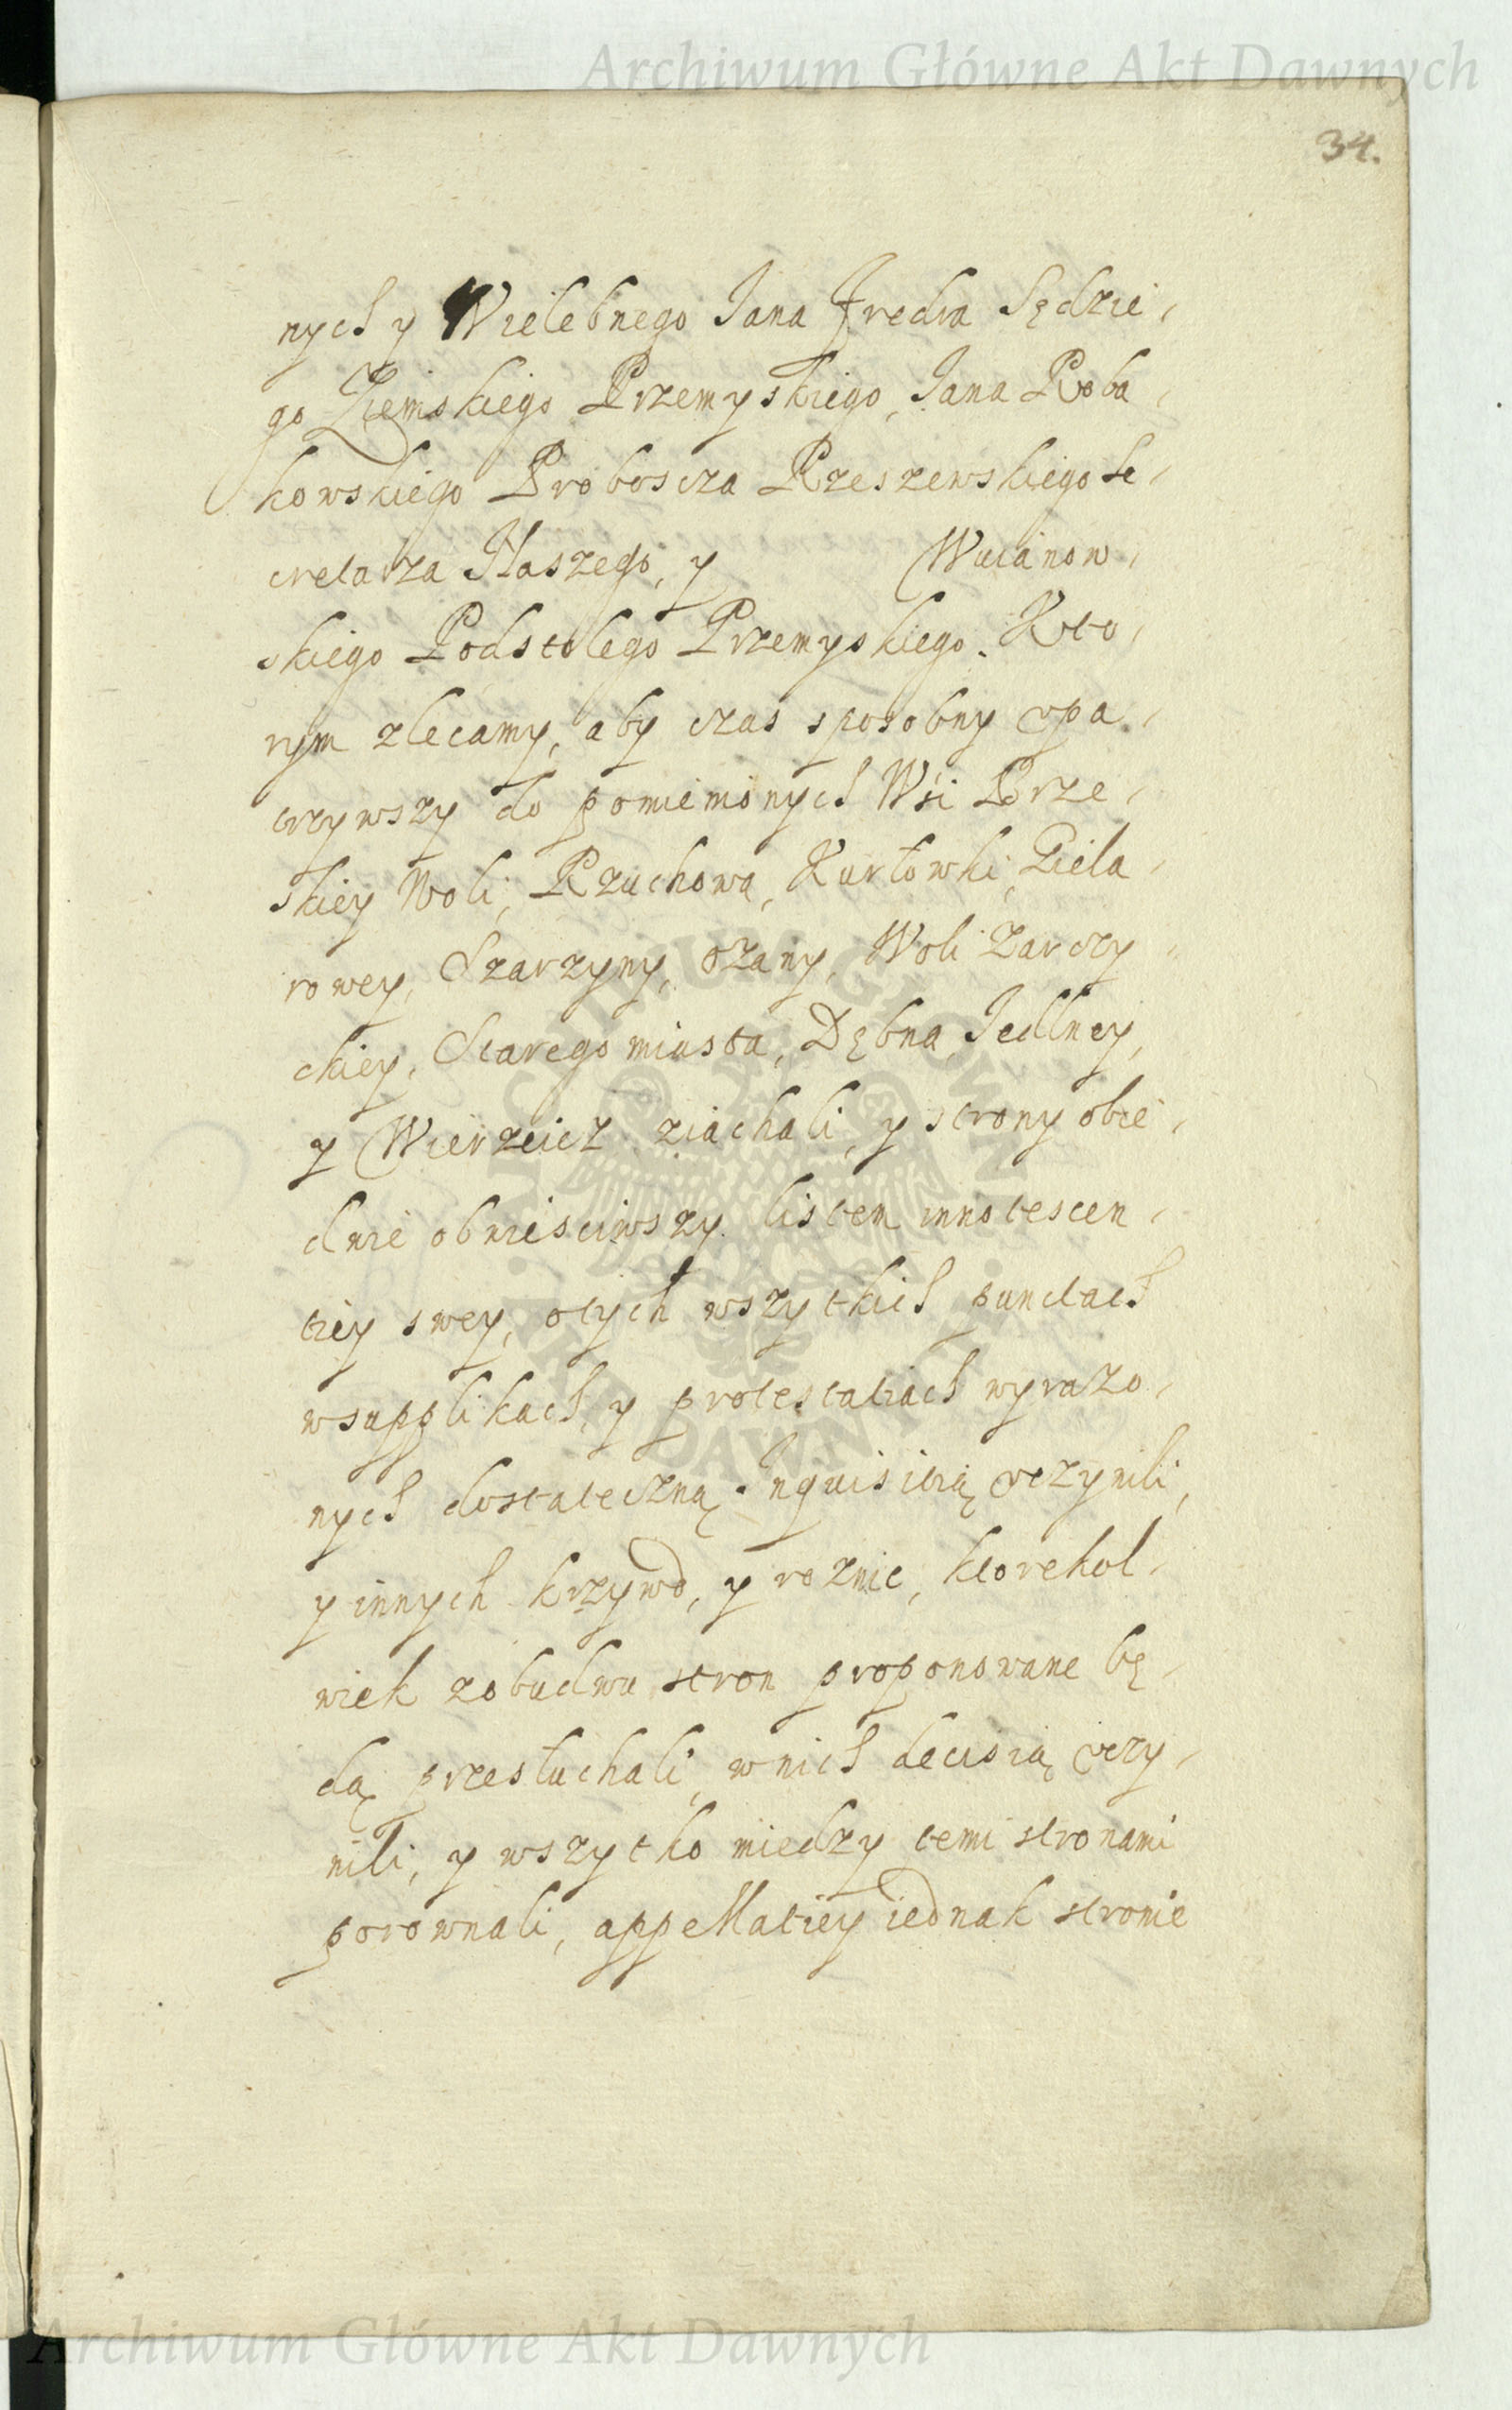 Archiwum Główne Akt Dawnych
34.
nych y Wielebnego Jana Fredra Sędzie,
go Ziemskiego Przemyskiego, Jana Roba,
kowskiego Proboscza Rzeszewskiego Se,
cretarza Naszego, y
skiego Podstolego Przemyskiego. Kto,
rym zlecamy, aby czas sposobny opa,
trzywszy do pomienionych Wśi Brze,
skiey Woli, Rzuchowa, Kuryłowki, Giela,
rowey, Szarzyny, Ożany, Woli Zarczy,
ckiey, Starego miasta, Dębna, Jedlney,
y Wierzeicz ziachali, y strony obie,
dwie obwiesciwszy listem innotescen,
tiey swey, otych wszytkich punctach
wsupplikach, y protestatiach wyrazo,
nych dostateczną Inquisitią uczynili,
y innych krzywd, y roznic, ktorekol,
wiek zobudwu stron proponowane bę,
dą przesłuchali, wnich decisią uczy,
nili, y wszytko miedzy temi stronami
porownali, appellatiey iednak stronie
Archiwum Główne Akt Dawnych